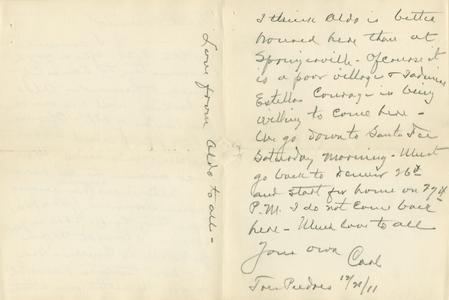 I think Aldo is better
housed here than at
Springerville - Of course it
is a poor village & I admire
Estellas Courage in being
willing to come here -
We go down to Santa Fee
Saturday morning - Must
go back to Denver 26th
and start for home on 27th
P.M. I do not come back
here - Much love to all
Your own
Carl
Tres Piedras 12/20/11
Love from Aldo to all -